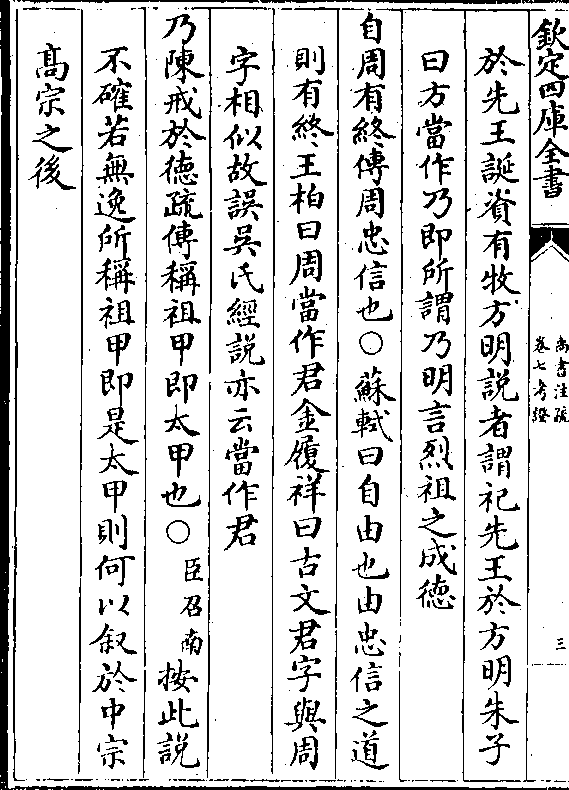 欽定四庫全書
尚書注疏
卷七考證
三
於先王誕資有牧方明説者謂祀先王於方明朱子
曰方當作乃即所謂乃明言烈祖之成德
自周有終傳周忠信也○蘇軾曰自由也由忠信之道
則有終王柏曰周當作君金履祥曰古文君字與周
字相似故誤吳氏經説亦云當作君
乃陳戒於德疏傳稱祖甲即太甲也○臣召南按此説
不確若無逸所稱祖甲即是太甲則何以叙於中宗
髙宗之後